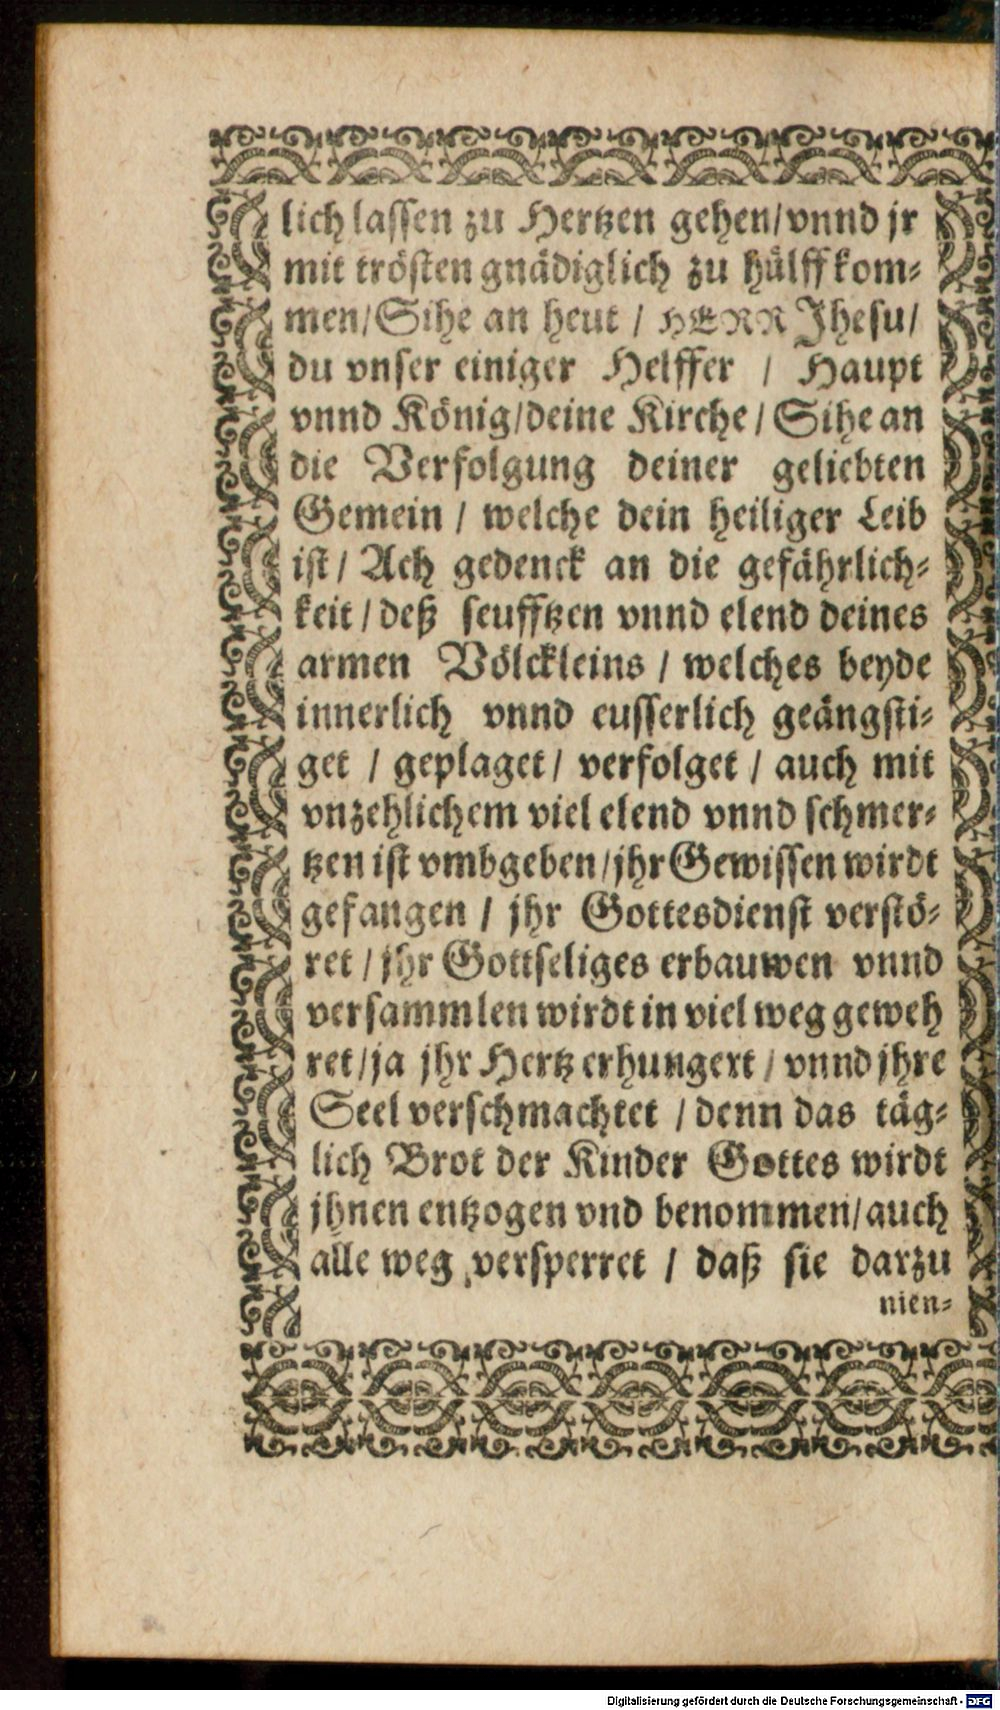 lich lassen zu Hertzen gehen/ vnnd jr
mit trösten gnädiglich zu hülff kom-
men/ Sihe an heut / HERR Jhesu/
du vnser einiger Helffer / Haupt
vnnd König/ deine Kirche/ Sihe an
die Verfolgung deiner geliebten
Gemein / welche dein heiliger Leib
ist/ Ach gedenck an die gefährlich-
keit/ deß seufftzen vnnd elend deines
armen Völckleins / welches beyde
innerlich vnnd eusserlich geängsti-
get / geplaget/ verfolget / auch mit
vnzehlichem viel elend vnnd schmer-
tzen ist vmbgeben/ jhr Gewissen wirdt
gefangen / jhr Gottesdienst verstö-
ret / jhr Gottseliges erbauwen vnnd
versammlen wirdt in viel weg geweh
ret/ ja jhr Hertz erhungert / vnnd jhre
Seel verschmachtet / denn das täg-
lich Brot der Kinder Gottes wirdt
jhnen entzogen vnd benommen/ auch
alle weg versperret / daß sie darzu
nien-
Digitalisierung gefördert durch die Deutsche Forschungsgemeinschaft - DFG